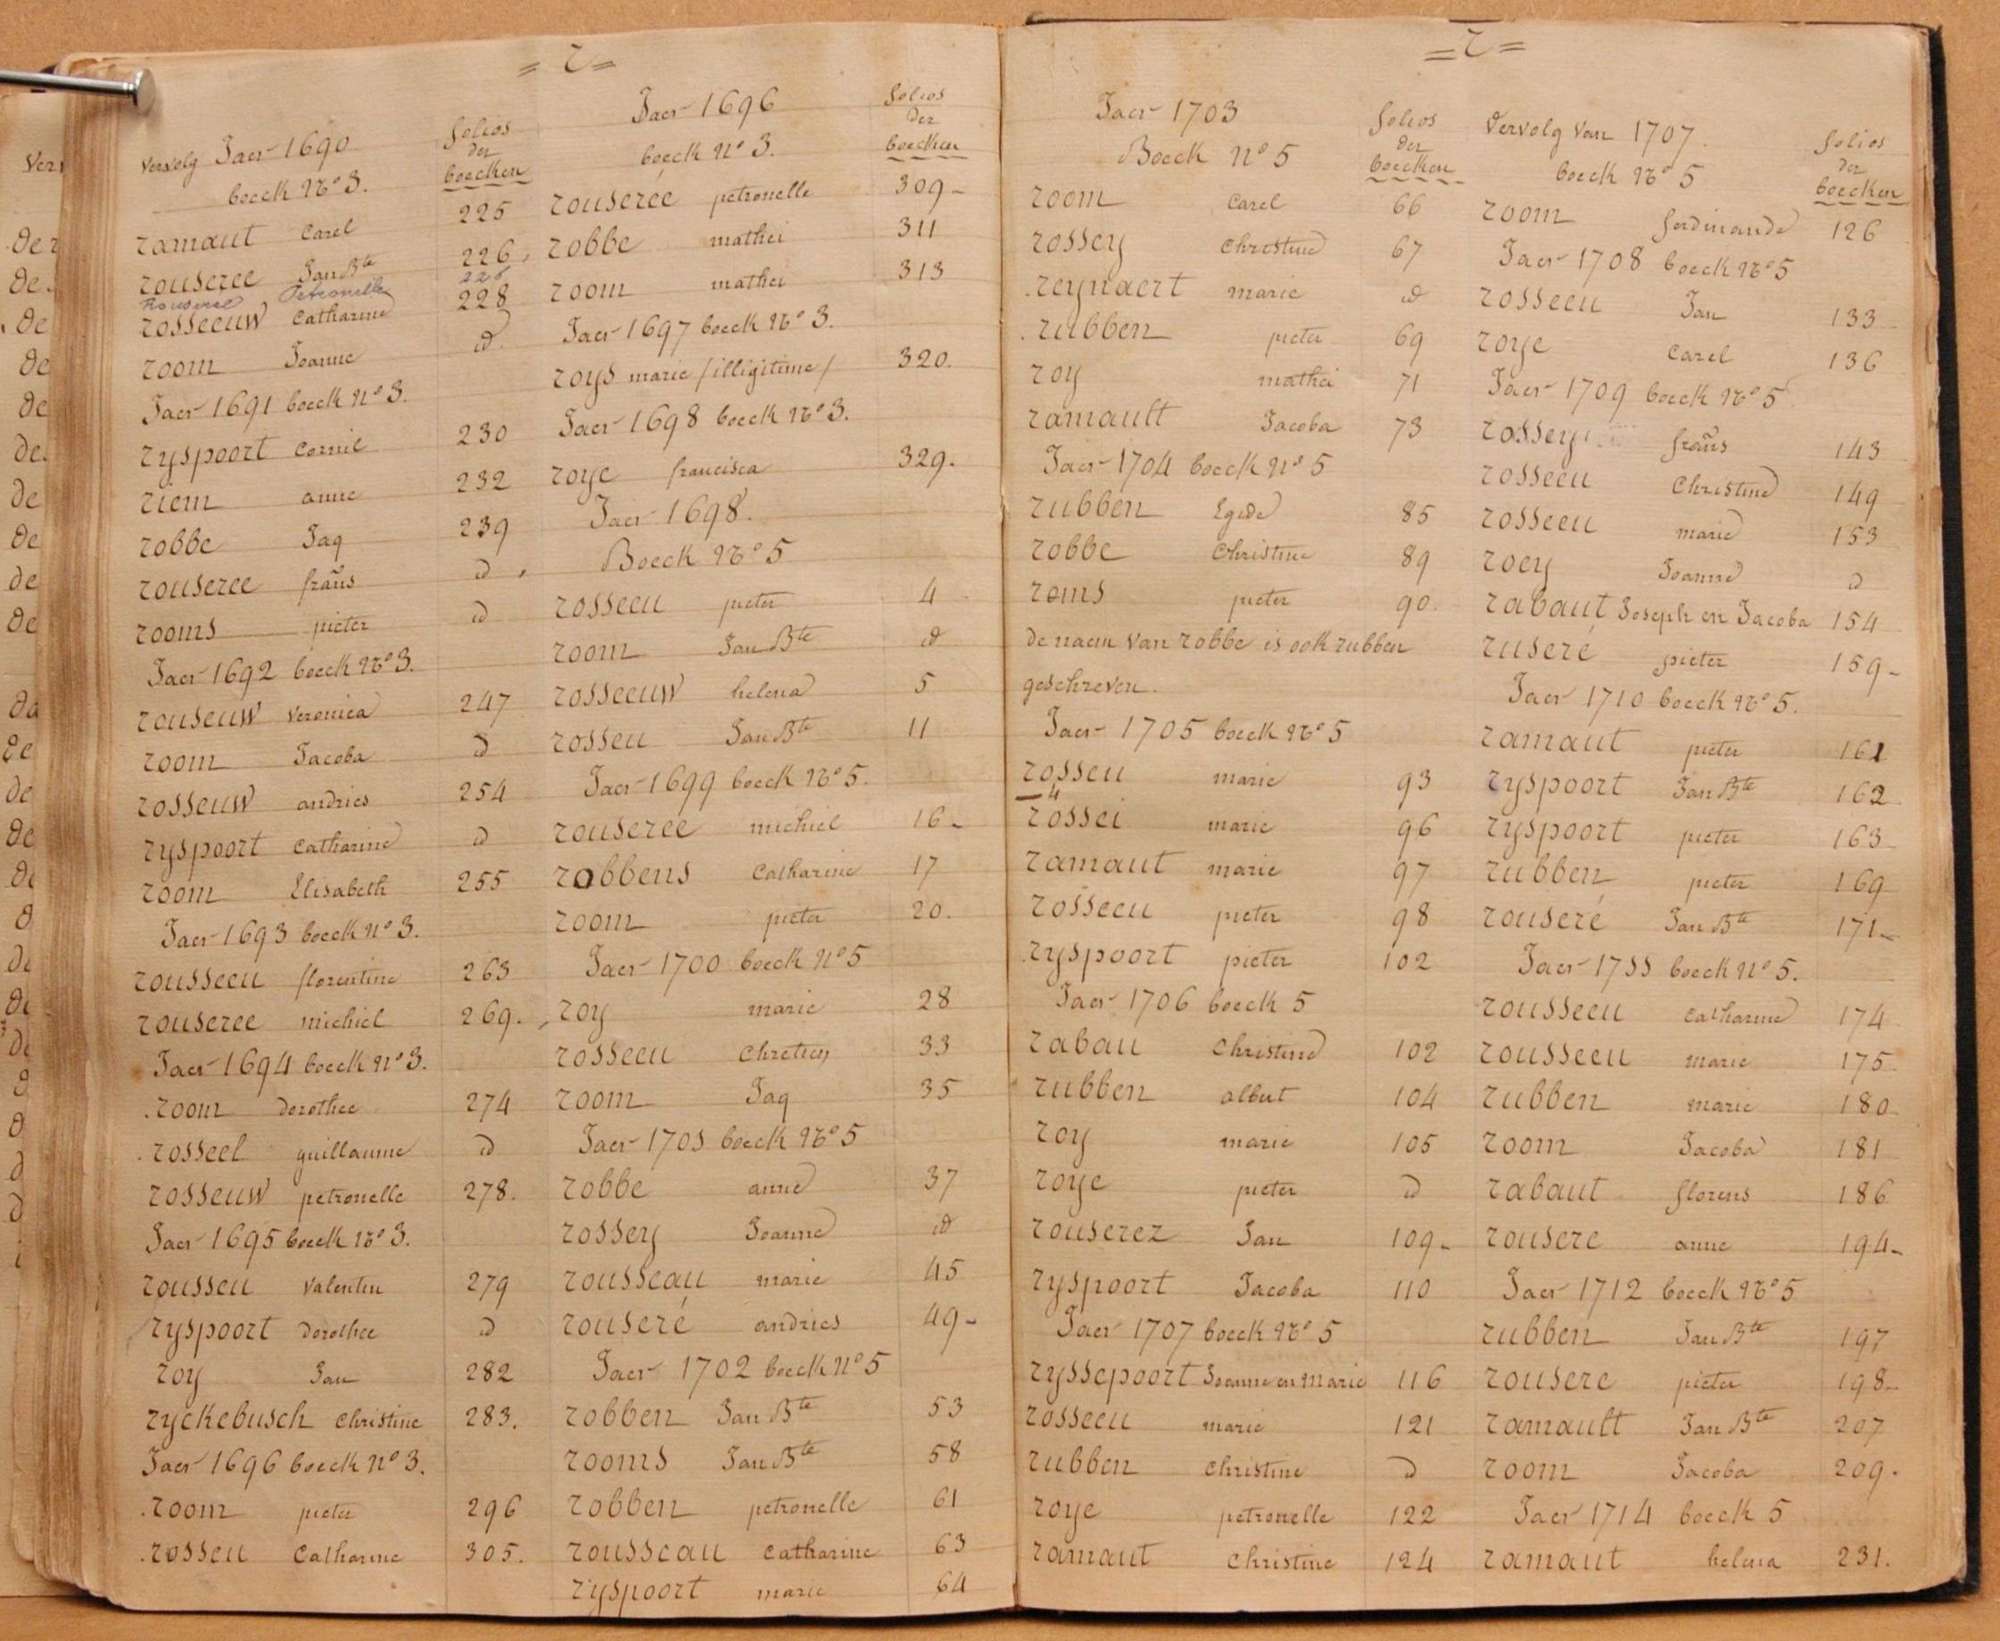 = r =
vervolg Jaer 1690
boeck No 3.
folios
der
boecken
ramaut Carel 225
rouseree Jan Bte 226
Rouseree Petronelle 226
rosseeuw Catharine 228
room Joanne d
Jaer 1691 boeck No 3.
ryspoort Cornil 230
riem anne 232
robbe Jaq 239
rouseree frans d
rooms pieter d
Jaer 1692 boeck No 3.
rouseuw veronica 247
room Jacoba d
rosseuw andries 254
ryspoort Catharine d
room Elisabeth 255
Jaer 1693 boeck No 3.
rousseeu florentine 263
rouseree michiel 269.
Jaer 1694 boeck No 3.
room dorothee 274
rosseel guillaume d
rosseuw petronelle 278.
Jaer 1695 boeck No 3.
rousseu valentin 279
ryspoort dorothee d
roy Jan 282
ryckebusch Christine 283.
Jaer 1696 boeck No 3.
room pieter 296
rosseu Catharine 305.
Jaer 1696
boeck No 3.
folios
der
boecken
rouserée petronelle 309-
robbe mathei 311
room mathei 313
Jaer 1697 boeck No 3.
roys marie /illigitime/ 320.
Jaer 1698 boeck No 3.
roye francisca 329.
Jaer 1698.
Boeck No 5
rosseeu pieter 4
room Jan Bte d
rosseeuw helena 5
rosseu Jan Bte 11
Jaer 1699 boeck No 5.
rouseree michiel 16-
robbens Catharine 17
room pieter 20.
Jaer 1700 boeck No 5
roy marie 28
rosseeu Chretien 33
room Jaq 35
Jaer 1701 boeck No 5
robbe anne 37
rossey Joanne d
rousseau marie 45
rouseré andries 49-
Jaer 1702 boeck No 5
robben Jan Bte 53
rooms Jan Bte 58
robben petronelle 61
rousseau Catharine 63
ryspoort marie 64
= r =
Jaer 1703
Boeck No 5
folios
der
boecken
room Carel 66
rossey Christine 67
reynaert marie d
rubben pieter 69
roy mathei 71
ramault Jacoba 73
Jaer 1704 boeck No 5
rubben Egide 85
robbe Christine 89
roms pieter 90.
de naem van robbe is ook rubben
geschreven.
Jaer 1705 boeck No 5
rosseu marie 93
4
rossei marie 96
ramaut marie 97
rosseeu pieter 98
ryspoort pieter 102
Jaer 1706 boeck 5
rabau Christine 102
rubben albert 104
roy marie 105
roye pieter d
rouserez Jan 109-
ryspoort Jacoba 110
Jaer 1707 boeck No 5
ryssepoort Joanne en Marie 116
rosseeu marie 121
rubben Christine d
roye petronelle 122
ramaut Christine 124
vervolg van 1707.
boeck No 5
folios
der
boecken
room ferdinande 126
Jaer 1708 boeck No 5
rosseeu Jan 133
roye Carel 136
Jaer 1709 boeck No 5
rossey frans 143
rosseeu Christine 149
rosseeu marie 153
roey Joanne d
rabaut Joseph en Jacoba 154
ruseré pieter 159-
Jaer 1710 boeck No 5.
ramaut pieter 161
ryspoort Jan Bte 162
ryspoort pieter 163
rubben pieter 169
rouseré Jan Bte 171-
Jaer 1711 boeck No 5.
rousseeu Catharine 174
rousseeu marie 175
rubben marie 180
room Jacoba 181
rabaut florens 186
rousere anne 194-
Jaer 1712 boeck No 5
rubben Jan Bte 197
rousere pieter 198-
ramault Jan Bte 207
room Jacoba 209.
Jaer 1714 boeck 5
ramaut helena 231.